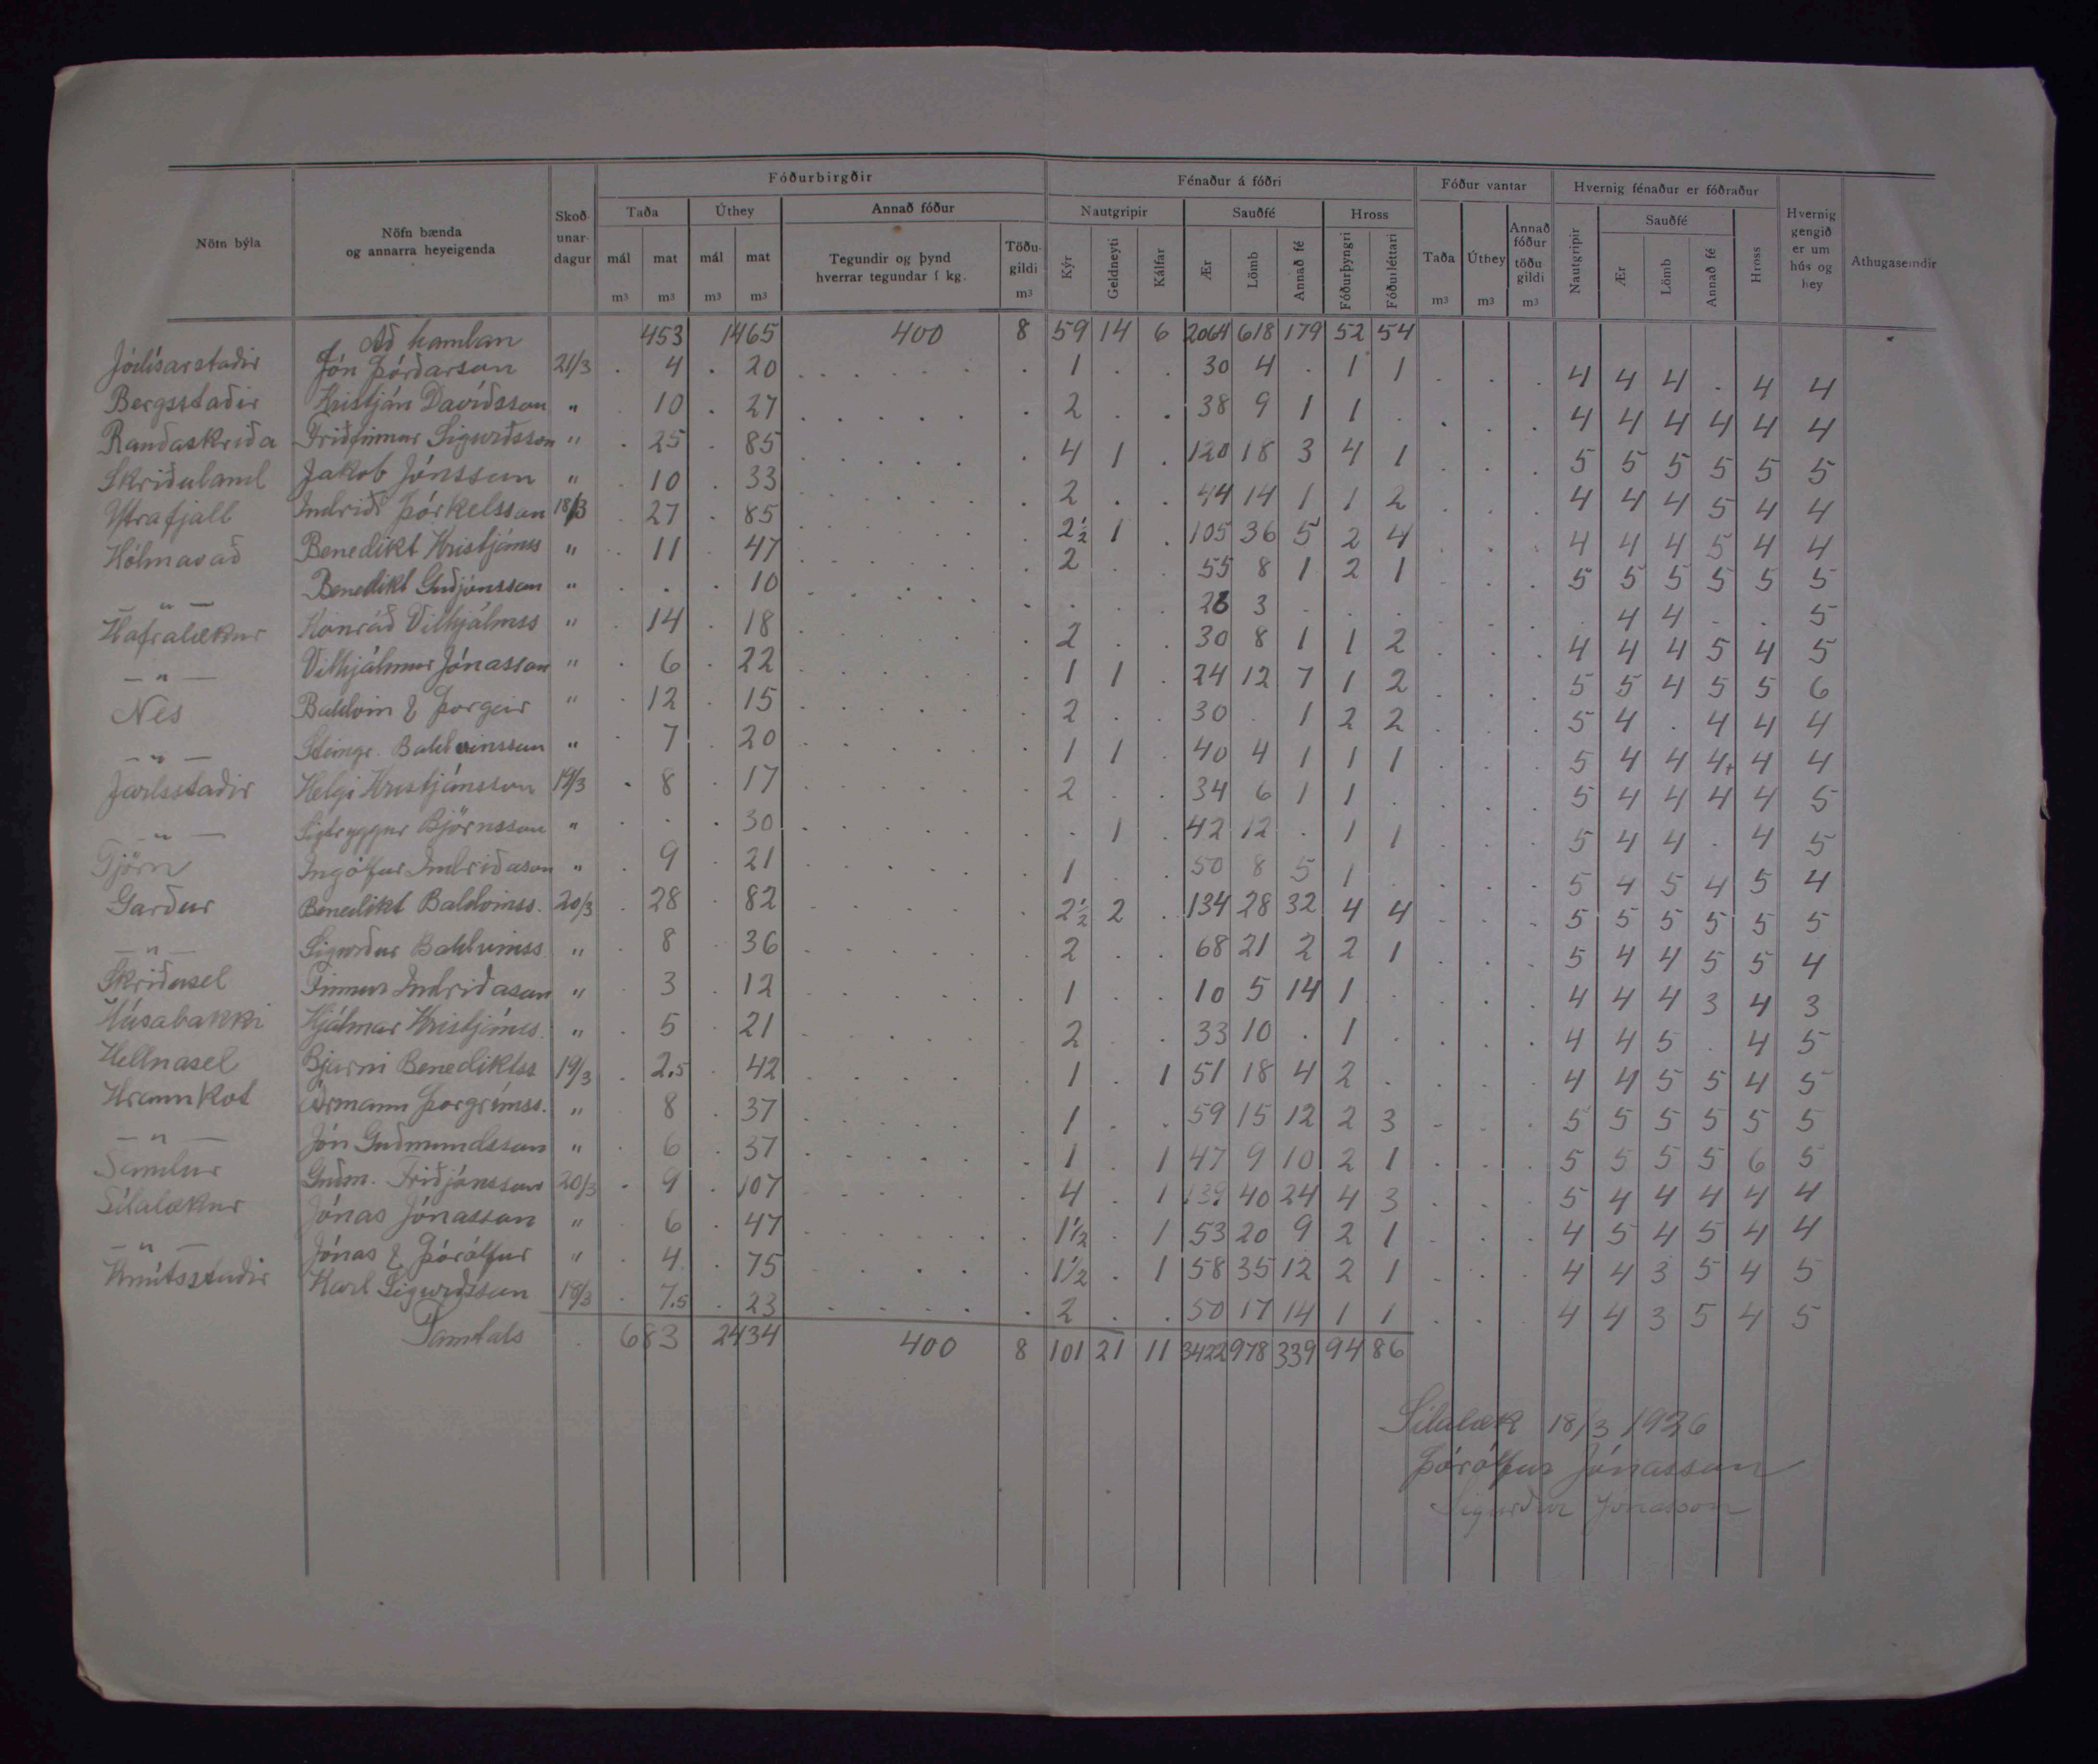 Fóðurbirgðir Fénaður á fóðri Fóður vantar Hvernig fénaður er fóðraður
Nöfn býla Nöfn bænda og annarra heyeigenda Skoðunardagur Taða Úthey Annað fóður Nautgripir Sauðfé Hross Taða Úthey Annað fóður töðugildi Nautgripir Sauðfé Hross Hvernig gengið er um hús og hey Athugasemdir
mál mat mál mat Tegundir og þynd hverrar tegundar í kg. Töðugildi Kýr Geldneyti Kálfar Ær Lömb Annað fé Fóðurþyngri Fóðurléttari Ær Lömb Annað fé
m³ m³ m³ m³ m³ m³ m³ m³
Að handan 453 1465 400 8 59 14 6 2064 618 179 52 54
Jódísarstaðir Jón Þórðarson 21/3 . 4 . 20 . 1 . . 30 4 . 1 1 . . . 4 4 4 . 4 4
Bergsstaðir Kristján Davíðsson " . 10 . 27 . 2 . . 38 9 1 1 . . . . 4 4 4 4 4 4
Rauðaskriða Friðfinnur Sigurðsson " . 25 . 85 . 4 1 . 120 18 3 4 1 . . . 5 5 5 5 5 5
Skriðuland Jakob Jónsson " . 10 . 33 . 2 . . 44 14 1 1 2 . . . 4 4 4 5 4 4
Ytrafjall Indriði Þórkelsson 18/3 . 27 . 85 . 2½ 1 . 105 36 5 2 4 . . . 4 4 4 5 4 4
Hólmavað Benedikt Kristjánss " . 11 . 47 . 2 . . 55 8 1 2 1 . . . 5 5 5 5 5 5
— " — Benedikt Guðjónsson " . . . 10 . . . . 28 3 . . . . . . . 4 4 . . 5
Hafralækur Konráð Vilhjálmss " . 14 . 18 . 2 . . 30 8 1 1 2 . . . 4 4 4 5 4 5
— " — Vilhjálmur Jónasson " . 6 . 22 . 1 1 . 24 12 7 1 2 . . . 5 5 4 5 5 6
Nes Baldvin & Þorgeir " . 12 . 15 . 2 . . 30 . 1 2 2 . . . 5 4 . 4 4 4
— " — Steingr. Baldvinsson " . 7 . 20 . 1 1 . 40 4 1 1 1 . . . 5 4 4 4+ 4 4
Jarlsstaðir Helgi Kristjánsson 19/3 . 8 . 17 . 2 . . 34 6 1 1 . . . . 5 4 4 4 4 5
— " — Sigtryggur Björnsson " . . . 30 . . 1 . 42 12 . 1 1 . . . 5 4 4 . 4 5
Tjörn Ingólfur Indriðason " . 9 . 21 . 1 . . 50 8 5 1 . . . . 5 4 5 4 5 4
Garður Benedikt Baldvinss. 20/3 . 28 . 82 . 2½ 2 . 134 28 32 4 4 . . . 5 5 5 5 5 5
— " — Sigurður Baldvinss " . 8 . 36 . 2 . . 68 21 2 2 1 . . . 5 4 4 5 5 4
Skriðusel Finnur Indriðason " . 3 . 12 . 1 . . 10 5 14 1 . . . . 4 4 4 3 4 3
Húsabakki Hjálmar Kristjánss. " . 5 . 21 . 2 . . 33 10 . 1 . . . . 4 4 5 . 4 5
Hellnasel Bjarni Benediktss 19/3 . 2.5 . 42 . 1 . 1 51 18 4 2 . . . . 4 4 5 5 4 5
Hraunkot Ármann Þorgrímss. " . 8 . 37 . 1 . . 59 15 12 2 3 . . . 5 5 5 5 5 5
— " — Jón Guðmundsson " . 6 . 37 . 1 . 1 47 9 10 2 1 . . . 5 5 5 5 6 5
Sandur Guðm. Friðjónsson 20/3 . 9 . 107 . 4 . 1 139 40 24 4 3 . . . 5 4 4 4 4 4
Sílalækur Jónas Jónasson " . 6 . 47 . 1½ . 1 53 20 9 2 1 . . . 4 5 4 5 4 4
— " — Jónas & Þórólfur " . 4 . 75 . 1½ . 1 58 35 12 2 1 . . . 4 4 3 5 4 5
Knútsstaðir Karl Sigurðsson 18/3 . 7.5 . 23 . 2 . . 50 17 14 1 1 . . . 4 4 3 5 4 5
Samtals . 683 2434 400 8 101 21 11 3422 978 339 94 86
Sílalæk 18/3 1936
Þórólfur Jónasson
Sigurður Jónasson